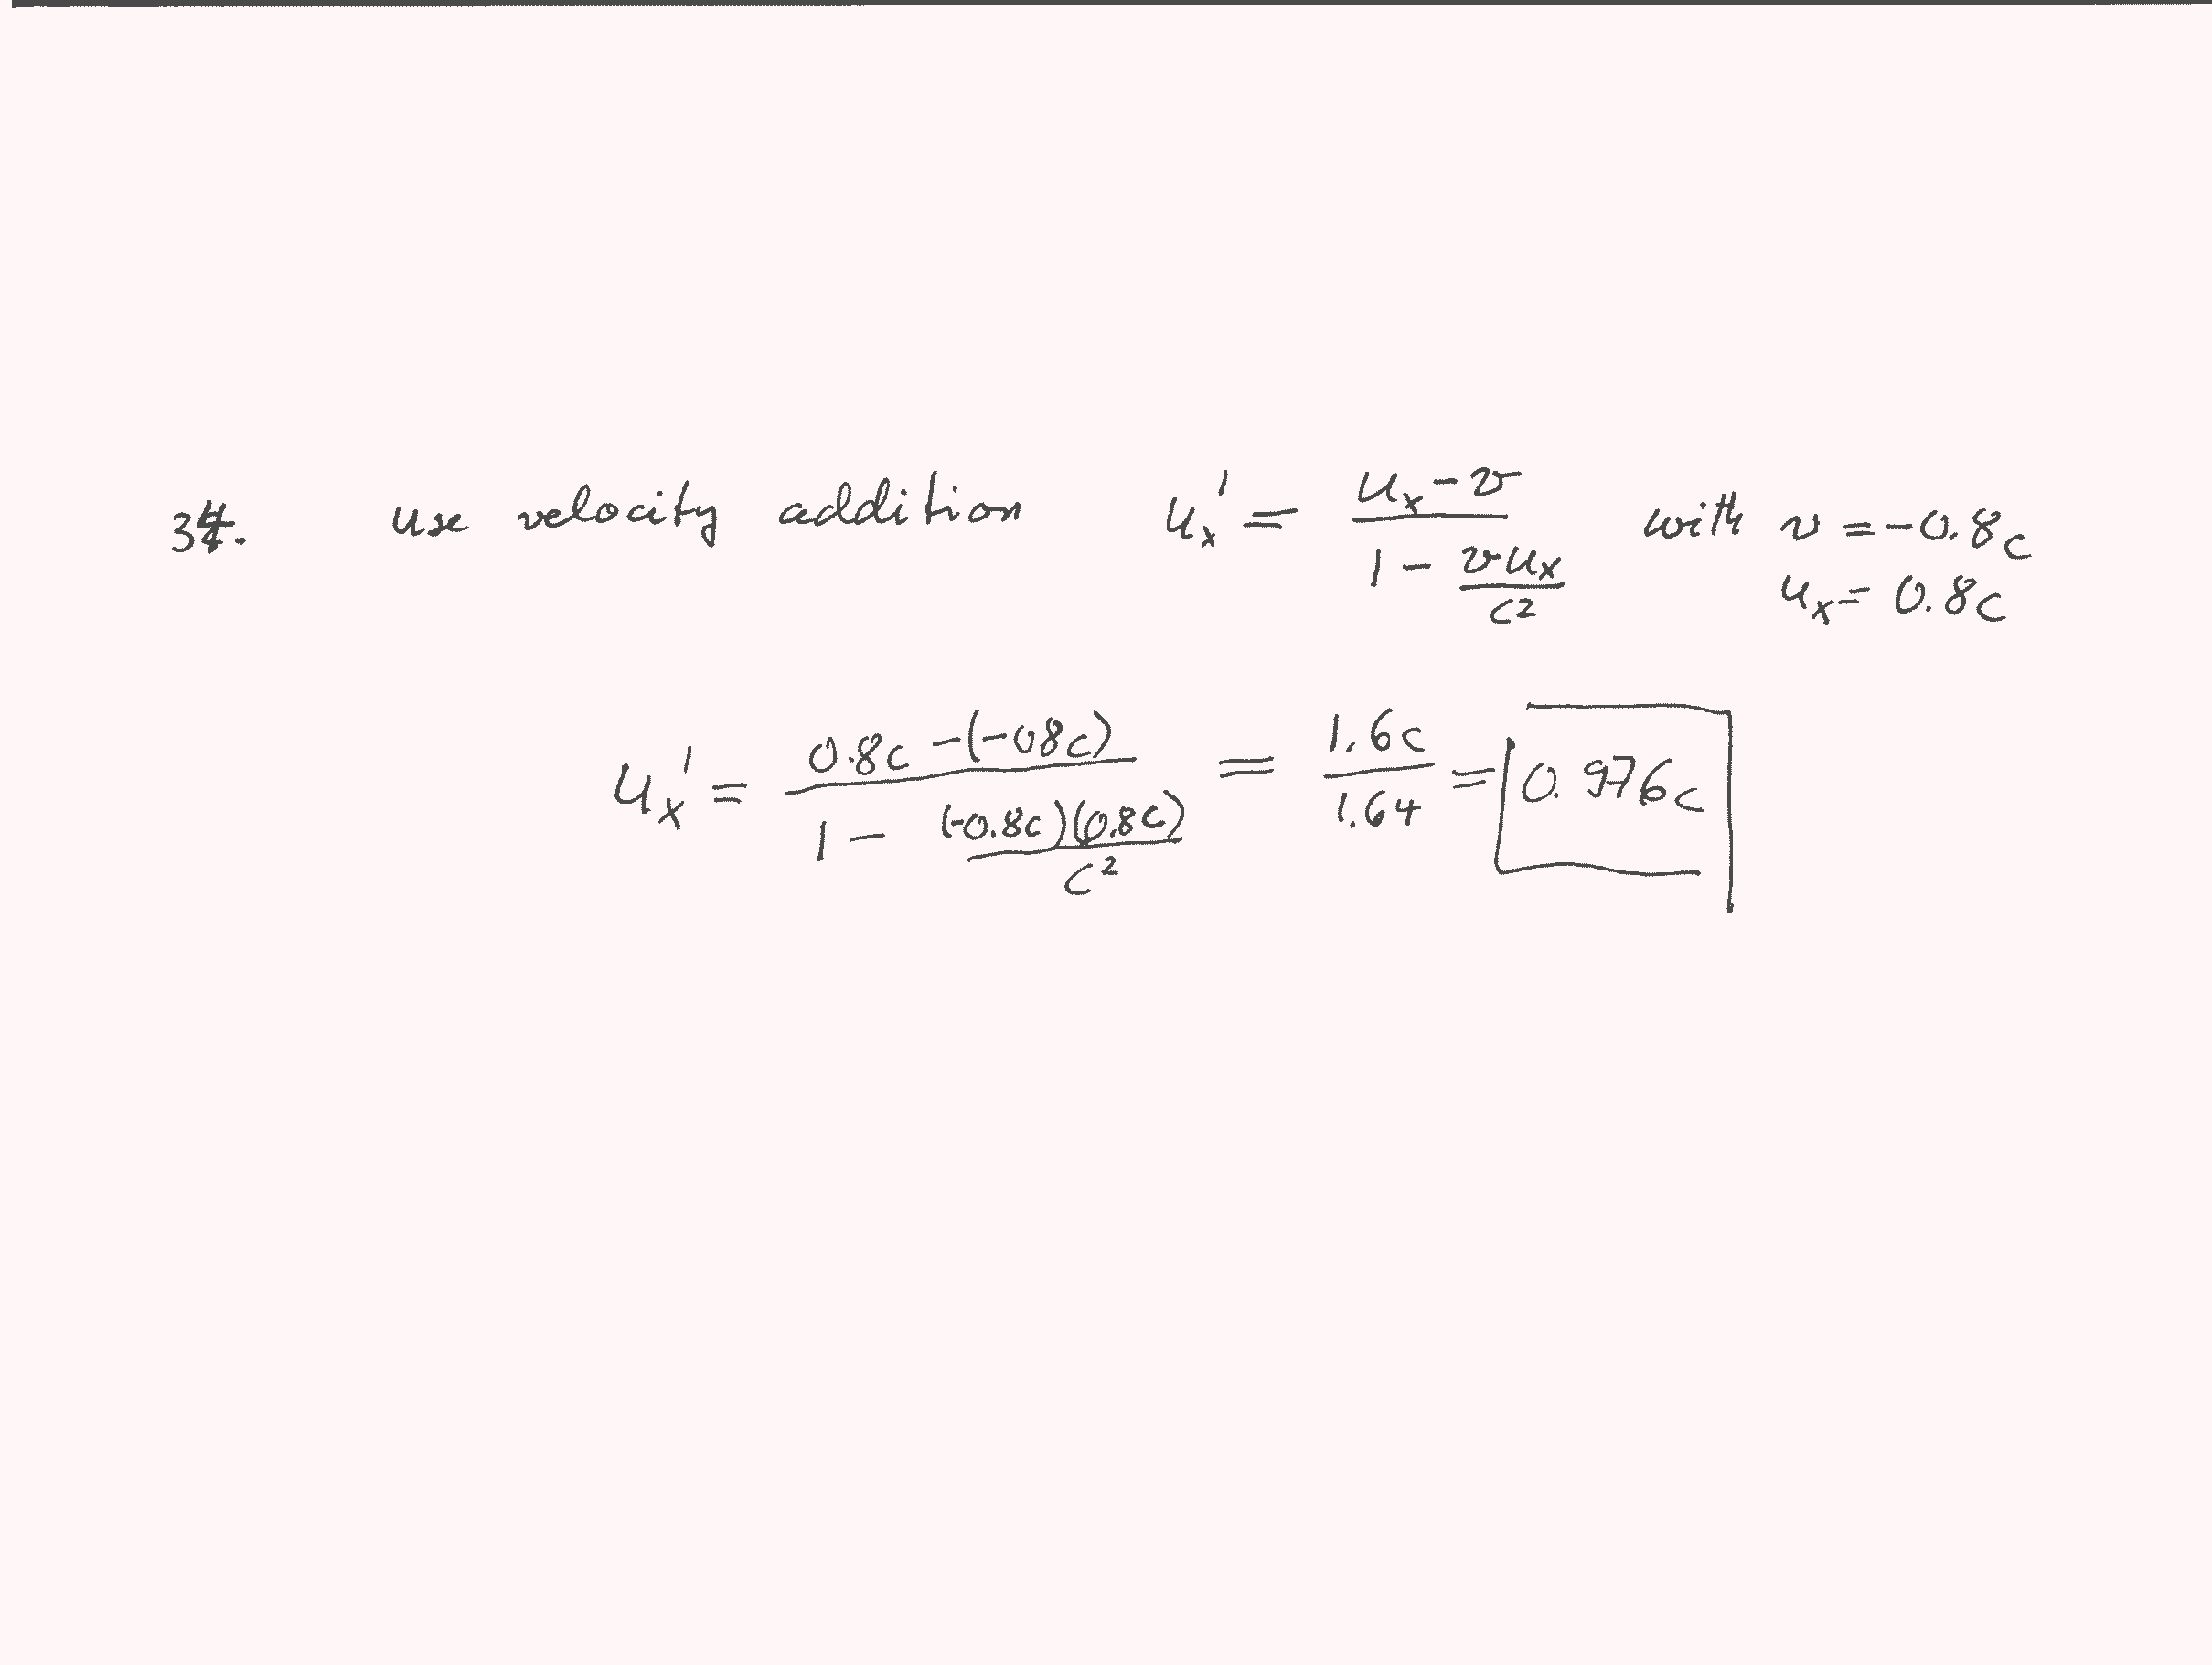 34. use velocity addition u_x' = \frac{u_x - v}{1 - \frac{v u_x}{c^2}} with v = -0.8c
u_x = 0.8c
u_x' = \frac{0.8c - (-08c)}{1 - \frac{(-0.8c)(0.8c)}{c^2}} = \frac{1.6c}{1.64} = 0.976c